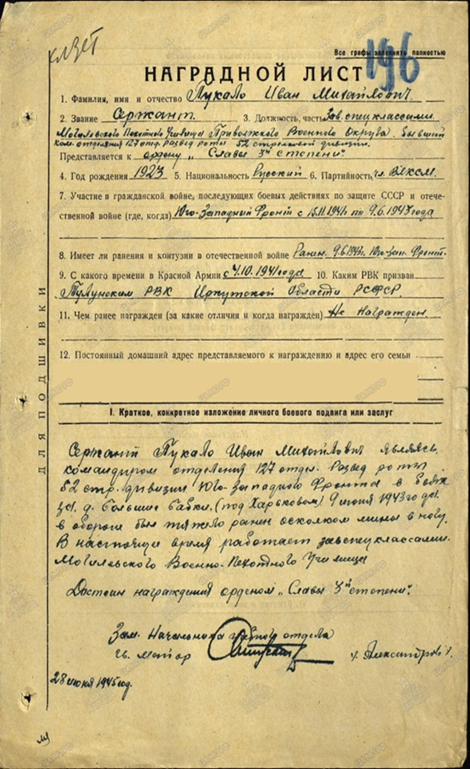 Все графы заполнять полностью
196
НАГРАДНОЙ ЛИСТ
1. Фамилия, имя и отчество Пукало Иван Михайлович
2. Звание Сержант 3. Должность, часть Зав. спецклассами
Могилевского Пехотного Училища Приволжского Военного Округа. бывший
ком. отделения 127 отд. развед роты 52 стрелковой дивизии.
Представляется к ордену „Славы 3й степени"
4. Год рождения 1923 5. Национальность Русский 6. Партийность чл. ВЛКСМ.
7. Участие в гражданской войне, последующих боевых действиях по защите СССР и отече-
ственной войне (где, когда) Юго-Западный Фронт с 1941 по 9.6.1943 года
8. Имеет ли ранения и контузии в отечественной войне Ранен. Юго-Зап. Фронт.
9. С какого времени в Красной Армии с 4.10.1941 года 10. Каким РВК призван
Тулунским РВК Иркутской Области РСФСР
11. Чем ранее награжден (за какие отличия и когда награжден) Не награжден
12. Постоянный домашний адрес представляемого к награждению и адрес его семьи
ДЛЯ ПОДШИВКИ
I. Краткое, конкретное изложение личного боевого подвига или заслуг
Сержант Пукало Иван Михайлович являясь
командиром отделения 127 отдел. развед роты
52 стр. дивизии Юго-Западного Фронта в боях
за д. Большие бабки. (под Харьковом) 9 июня 1943 года.
в обороне был тяжело ранен осколком мины в ногу.
В настоящее время работает завспецклассами.
Могилевского Военно-Пехотного Училища
Достоин награждения орденом „Славы 3й степени".
Зам. Начальника отдела
гв. майор /Александров/
28 июня 1945 год.